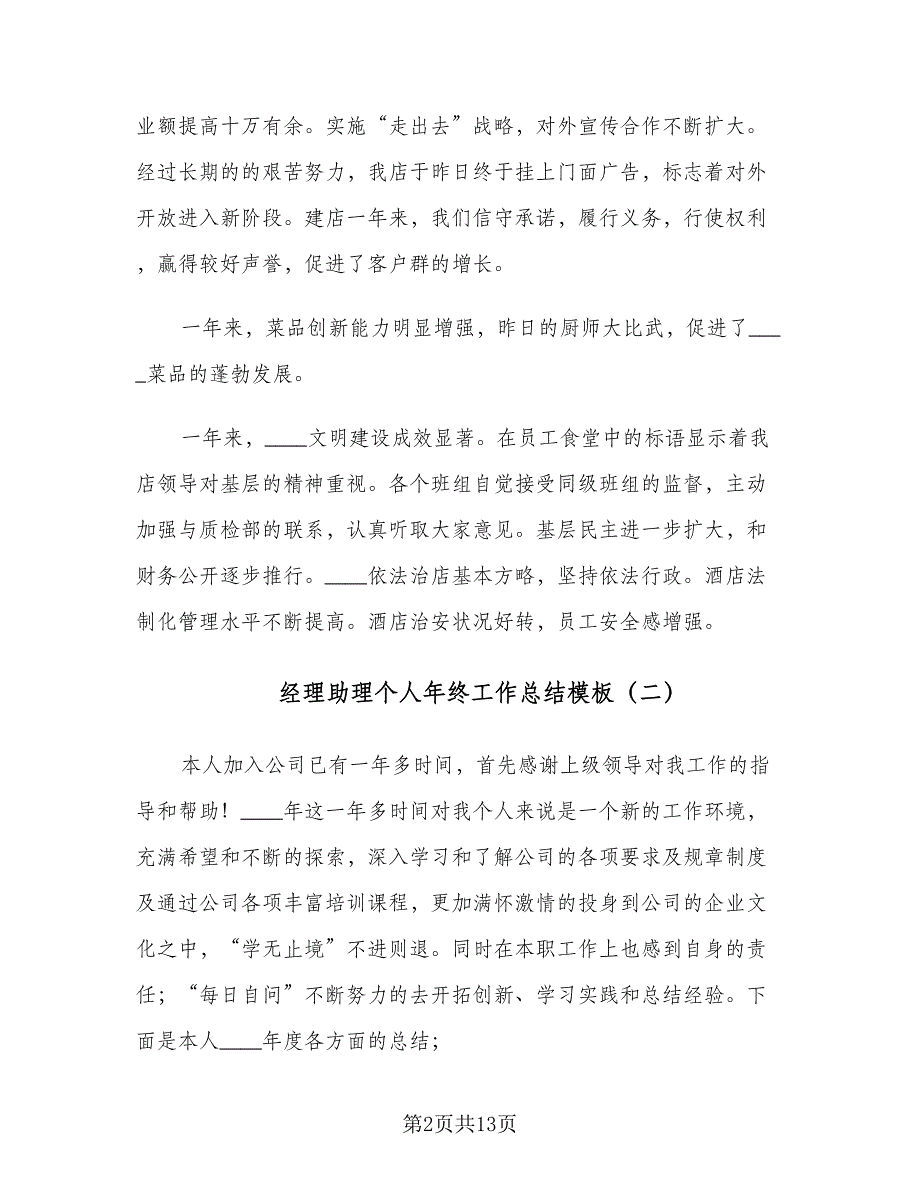 业额提高十万有余。实施“走出去”战略，对外宣传合作不断扩大。
经过长期的的艰苦努力，我店于昨日终于挂上门面广告，标志着对外
开放进入新阶段。建店一年来，我们信守承诺，履行义务，行使权利
，赢得较好声誉，促进了客户群的增长。
一年来，菜品创新能力明显增强，昨日的厨师大比武，促进了___
_菜品的蓬勃发展。
一年来，____文明建设成效显著。在员工食堂中的标语显示着我
店领导对基层的精神重视。各个班组自觉接受同级班组的监督，主动
加强与质检部的联系，认真听取大家意见。基层民主进一步扩大，和
财务公开逐步推行。____依法治店基本方略，坚持依法行政。酒店法
制化管理水平不断提高。酒店治安状况好转，员工安全感增强。
经理助理个人年终工作总结模板（二）
本人加入公司已有一年多时间，首先感谢上级领导对我工作的指
导和帮助！____年这一年多时间对我个人来说是一个新的工作环境，
充满希望和不断的探索，深入学习和了解公司的各项要求及规章制度
及通过公司各项丰富培训课程，更加满怀激情的投身到公司的企业文
化之中，“学无止境”不进则退。同时在本职工作上也感到自身的责
任；“每日自问”不断努力的去开拓创新、学习实践和总结经验。下
面是本人____年度各方面的总结；
第2页共13页